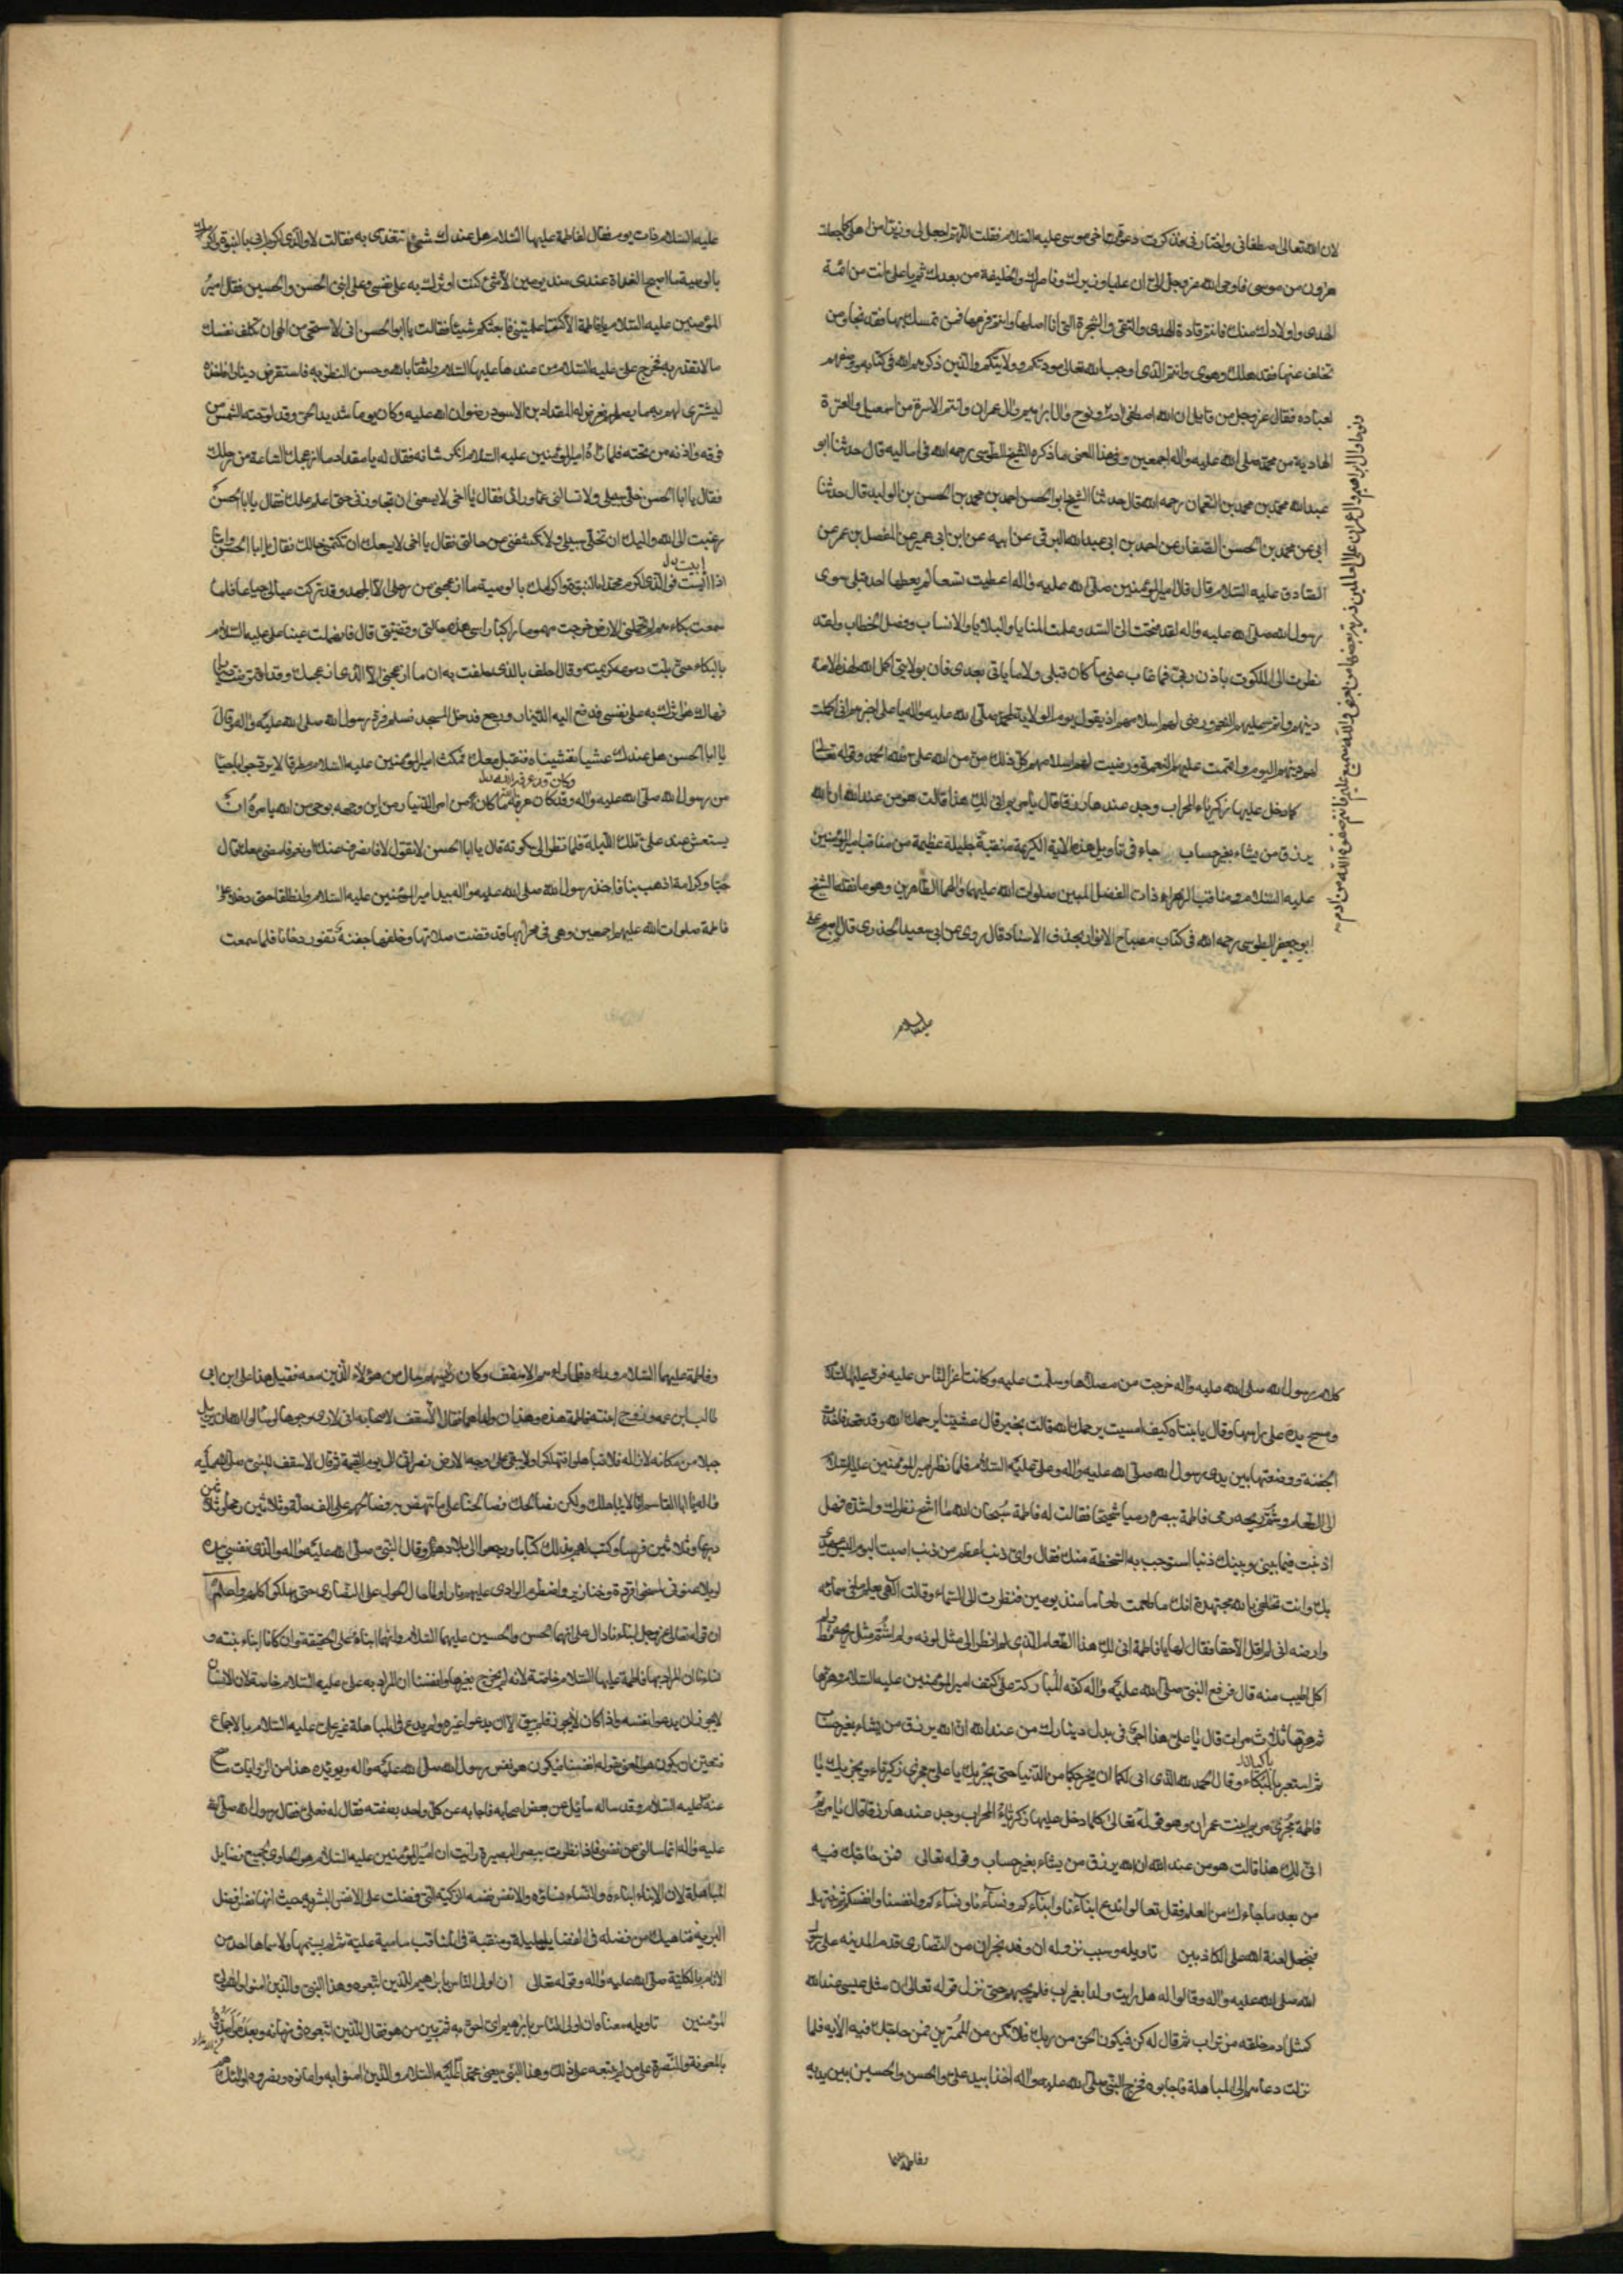 لان الله تعالى اصطفانى واختارنى فذكرت دعوة اخى موسى عليه السلام فقلت اللهم اجعل لى وزيرا من اهلى كما جعلت
هرون من موسى فاوحى الله عز وجل الى ان عليا وزيرك وناصرك والخليفة من بعدك ثم يا على انت من ائمة
الهدى واولادك منك فانتم قادة الهدى والتقى والشجرة التى انا اصلها وانتم فرعها فمن تمسك بها فقد نجا ومن
تخلف عنها فقد هلك وهوى وانتم الذى اوجب الله تعالى مودتكم وولايتكم والذين ذكرهم الله فى كتابه ووصفهم
لعباده فقال عز وجل من قايل ان الله اصطفى ادم ونوح وال ابرهيم وال عمران وانتم الاسرة من اسمعيل والعترة
الهادية من محمد صلى الله عليه واله اجمعين وفى هذا المعنى ما ذكره الشيخ الطوسى رحمه الله فى اماليه قال حدثنا ابو
عبد الله محمد بن محمد بن النعمان رحمه الله قال حدثنا الشيخ ابو الحسن احمد بن محمد بن الحسن بن الوليد قال حدثنا
ابى عن محمد بن الحسن الصفار عن احمد بن ابى عبد الله البرقى عن ابيه عن ابن ابى عمير عن المفضل بن عمر عن
الصادق عليه السلام قال قال امير المؤمنين صلى الله عليه واله اعطيت تسعا لم يعطها احد قبلى سوى
رسول الله صلى الله عليه واله لقد فتحت الى السبل وعلمت المنايا والبلايا والانساب وفصل الخطاب ولقد
نظرت الى الملكوت باذن ربى فما غاب عنى ما كان قبلى ولا ما ياتى بعدى فان بولايتى اكمل الله لهذه الامة
دينهم واتم عليهم النعم ورضى لهم اسلامهم اذ يقول يوم الولاية لمحمد صلى الله عليه واله يا على اخبرهم انى اكملت
لهم دينهم اليوم واتممت عليهم النعمة ورضيت لهم اسلامهم كل ذلك من من الله على فله الحمد وقوله تعالى
كلما دخل عليها زكرياء المحراب وجد عندها رزقا قال يا مريم انى لك هذا قالت هو من عند الله ان الله
يرزق من يشاء بغير حساب جاء فى تاويل هذه الاية الكريمة منقبة جليلة عظيمة من مناقب امير المؤمنين
عليه السلام ومناقب الزهراء ذات الفضل المبين صلوات الله عليهما والهما الطاهرين وهو ما نقله الشيخ
ابو جعفر الطوسى رحمه الله فى كتاب مصباح الانوار بحذف الاسناد قال روى عن ابى سعيد الخدرى قال اصبح على
ونوحا وال ابرهيم وال عمران على العالمين ذرية بعضها من بعض والله سميع عليم فانتم صفوة الله من ادم
عليه السلام
عليه السلام ذات يوم فقال لفاطمة عليها السلام هل عندك شئ نتغدى به فقالت لا والذى اكرم ابى بالنبوة واكرمك
بالوصية ما اصبح الغداة عندى منذ يومين الا شئ كنت اوثرك به على نفسى وعلى ابنى الحسن والحسين فقال امير
المؤمنين عليه السلام يا فاطمة الا كنت اعلمتينى فابغيكم شيئا فقالت يا ابو الحسن انى لاستحى من الهى ان تكلف نفسك
ما لا تقدر به فخرج على عليه السلام من عندها عليها السلام واثقا بالله وحسن الظن به فاستقرض دينارا فاخذه
ليشترى لهم به ما يصلهم فعرض له المقداد بن الاسود رضوان الله عليه وكان يوما شديد الحر وقد لوحته الشمس من
فوقه واذته من تحته فلما راه امير المؤمنين عليه السلام انكر شانه فقال له يا مقداد ما ازعجك الساعة من رحلك
فقال يا ابا الحسن خل سبيلى ولا تسالنى عما ورائى فقال يا اخى لا يسعنى ان تجاوزنى حتى اعلم علمك فقال يا ابا الحسن
رغبت الى الله واليك ان تخلى سبيلى ولا تكشفنى عن حالتى فقال يا اخى لا يسعك ان تكتمنى حالك فقال يا ابا الحسن
ابيت بدل
اذا ابيت فوالذى اكرم محمدا بالنبوة واكرمك بالوصية ما ازعجنى من رحلى الا الجهد وقد تركت عيالى جياعا فلما
سمعت بكاءهم لم تحملنى الارض خرجت مهموما راكبا راسى هذه حالتى وقصتى قال فانهملت عينا على عليه السلام
بالبكاء حتى بلت دموعه كريمته وقال احلف بالذى حلفت به ان ما ازعجنى الا الذى ازعجك وقد اقترضت دينارا
فهاك هو اوثرك به على نفسى فدفع اليه الدينار ورجع فدخل المسجد فسلم فرد رسول الله صلى الله عليه واله وقال
يا ابا الحسن هل عندك عشيا نتعشيناه فنتقبل معك فمكث امير المؤمنين عليه السلام مطرقا لا يرد جوابا حيا
من رسول الله صلى الله عليه واله وقد كان عرفه ما كان من امر الدينار من اين وجهه بوحى من الله يامره ان
يستعشى عند على تلك الليلة فلما نظر الى سكوته قال يا ابا الحسن لا تقول لا فانصرف عنك او نعم فامضى معك قال
حبا وكرامة اذهب بنا فاخذ رسول الله صلى الله عليه واله بيد امير المؤمنين عليه السلام وانطلقا حتى دخلا على
فاطمة صلوات الله عليهم اجمعين وهى فى محرابها قد قضت صلاتها وخلفها جفنة تفور دخانا فلما سمعت
كلام رسول الله صلى الله عليه واله خرجت من مصلاها وسلمت عليه وكانت اعز الناس عليه فرد عليها السلام
ومسح بيده على راسها وقال يا بنتاه كيف امسيت يرحمك الله قالت بخير قال عشينا يرحمك الله وقد فعل فاخذت
الجفنة ووضعتها بين يدى رسول الله صلى الله عليه واله وعلى عليه السلام فلما نظر امير المؤمنين عليه السلام
الى الطعام وشم ريحه رمى فاطمة ببصره رميا شحيحا فقالت له فاطمة سبحان الله ما اشح نظرك واشده فهل
اذنبت فيما بينى وبينك ذنبا استوجب به السخطة منك فقال واى ذنب اعظم من ذنب اصبت اليوم اليس عهدى
بك وانت تحلفين بالله مجتهدة انك ما طعمت طعاما منذ يومين فنظرت الى السماء وقالت الهى يعلم ما فى سمائه
وارضه انى لم اقل الا حقا فقال لها يا فاطمة انى لك هذا الطعام الذى لم انظر الى مثل لونه ولم اشم مثل ريحه قط ولم
اكل اطيب منه قال فوضع النبى صلى الله عليه واله كفه المباركة على كتف امير المؤمنين عليه السلام وهزها
ثم هزها ثلاث مرات قال يا على هذا الجزى فى بدل دينارك من عند الله ان الله يرزق من يشاء بغير حساب
ثم استعبر بالبكاء وقال الحمد لله الذى ابى لكما ان يخرجكما من الدنيا حتى يجريك يا على مجرى زكرياء ويجزيك يا
فاطمة مجرى مريم ابنت عمران وهو قوله تعالى كلما دخل عليها زكرياء المحراب وجد عندها رزقا قال يا مريم
انى لك هذا قالت هو من عند الله ان الله يرزق من يشاء بغير حساب وقوله تعالى فمن حاجك فيه
من بعد ما جاءك من العلم فقل تعالوا ندع ابناءنا وابناءكم ونساءنا ونساءكم وانفسنا وانفسكم ثم نبتهل
فنجعل لعنة الله على الكاذبين تاويله وسبب نزوله ان وفد نجران من النصارى قدم المدينة على رسول
الله صلى الله عليه واله وقالوا له هل رايت ولدا بغير اب فلم يجبهم حتى نزل قوله تعالى ان مثل عيسى عند الله
كمثل ادم خلقه من تراب ثم قال له كن فيكون الحق من ربك فلا تكن من الممترين فمن حاجك فيه الاية فلما
نزلت دعاهم الى المباهلة فاجابوه فخرج النبى صلى الله عليه واله اخذا بيد على والحسن والحسين بين يديه
وفاطمة عليها
وفاطمة عليها السلام وراءه فلما راهم الاسقف وكان رئيسهم سال من هؤلاء الذين معه فقيل هذا على ابن ابى
طالب ابن عمه وزوج ابنته فاطمة هذه وهذان ولداهما فقال الاسقف لاصحابه انى لارى وجوها لو سالوا الله ان يزيل
جبلا من مكانه لازاله فلا تباهلوا فتهلكوا ولا يبقى على وجه الارض نصرانى الى يوم القيمة ثم قال الاسقف للنبى صلى الله عليه
واله يا ابا القاسم انا لا نباهلك ولكن نصالحك فصالحنا على ما ننهض به فصالحهم على الف حلة وثلاثين رمحا وثلاثين
درعا وثلاثين فرسا وكتب لهم بذلك كتابا ورجعوا الى بلادهم وقال النبى صلى الله عليه واله والذى نفسى بيده
لو يلاعنونى لمسخوا قردة وخنازير واضطرم الوادى عليهم نارا ولما حال الحول على النصارى حتى يهلكوا كلهم واعلم
ان قوله تعالى عز وجل ابناءنا دال على انهما الحسن والحسين عليهما السلام وانهما ابناه على الحقيقة وان كانا ابناء بنته و
نساءنا ان المراد بها فاطمة عليها السلام خاصة لانه لم يخرج بغيرها وانفسنا ان المراد به على عليه السلام خاصة لان الانسان
لا يجوز ان يدعو نفسه واذا كان لا يجوز فلم يبق الا ان يدعو غيره ولم يدع فى المباهلة غير على عليه السلام بالاجماع
فتعين ان يكون هو المعنى بقوله انفسنا فيكون هو نفس رسول الله صلى الله عليه واله ويؤيده هذا من الروايات صح
عنه عليه السلام وقد ساله سائل عن بعض اصحابه فاجابه عن كل واحد بصفته فقال له فعلى فقال رسول الله صلى الله
عليه واله انما سالتنى عن نفسى فاذا نظرت ببصر البصيرة رايت ان امير المؤمنين عليه السلام هو الحاوى جميع فضايل
المباهلة لان الابناء ابناءه والنساء نساؤه والانفس نفسه الزكية التى فضلت على الانفس البشرية حيث انها نفس افضل
البرية فناهيك من فضله فى الفضايل جليلة ومنقبة فى المناقب سامية علية
الانام بالكلية صلى الله عليه واله وقوله تعالى ان اولى الناس بابرهيم للذين اتبعوه وهذا النبى والذين امنوا والله ولى
المؤمنين تاويله معناه ان اولى الناس بابرهيم اى احق به ثم بين من هو فقال للذين اتبعوه فى زمانه وبعده
بالمعونة والنصرة على من لم يتبعه على ذلك وهذا النبى يعنى محمدا عليه السلام والذين امنوا به واعانوه ونصروه اولئك هم